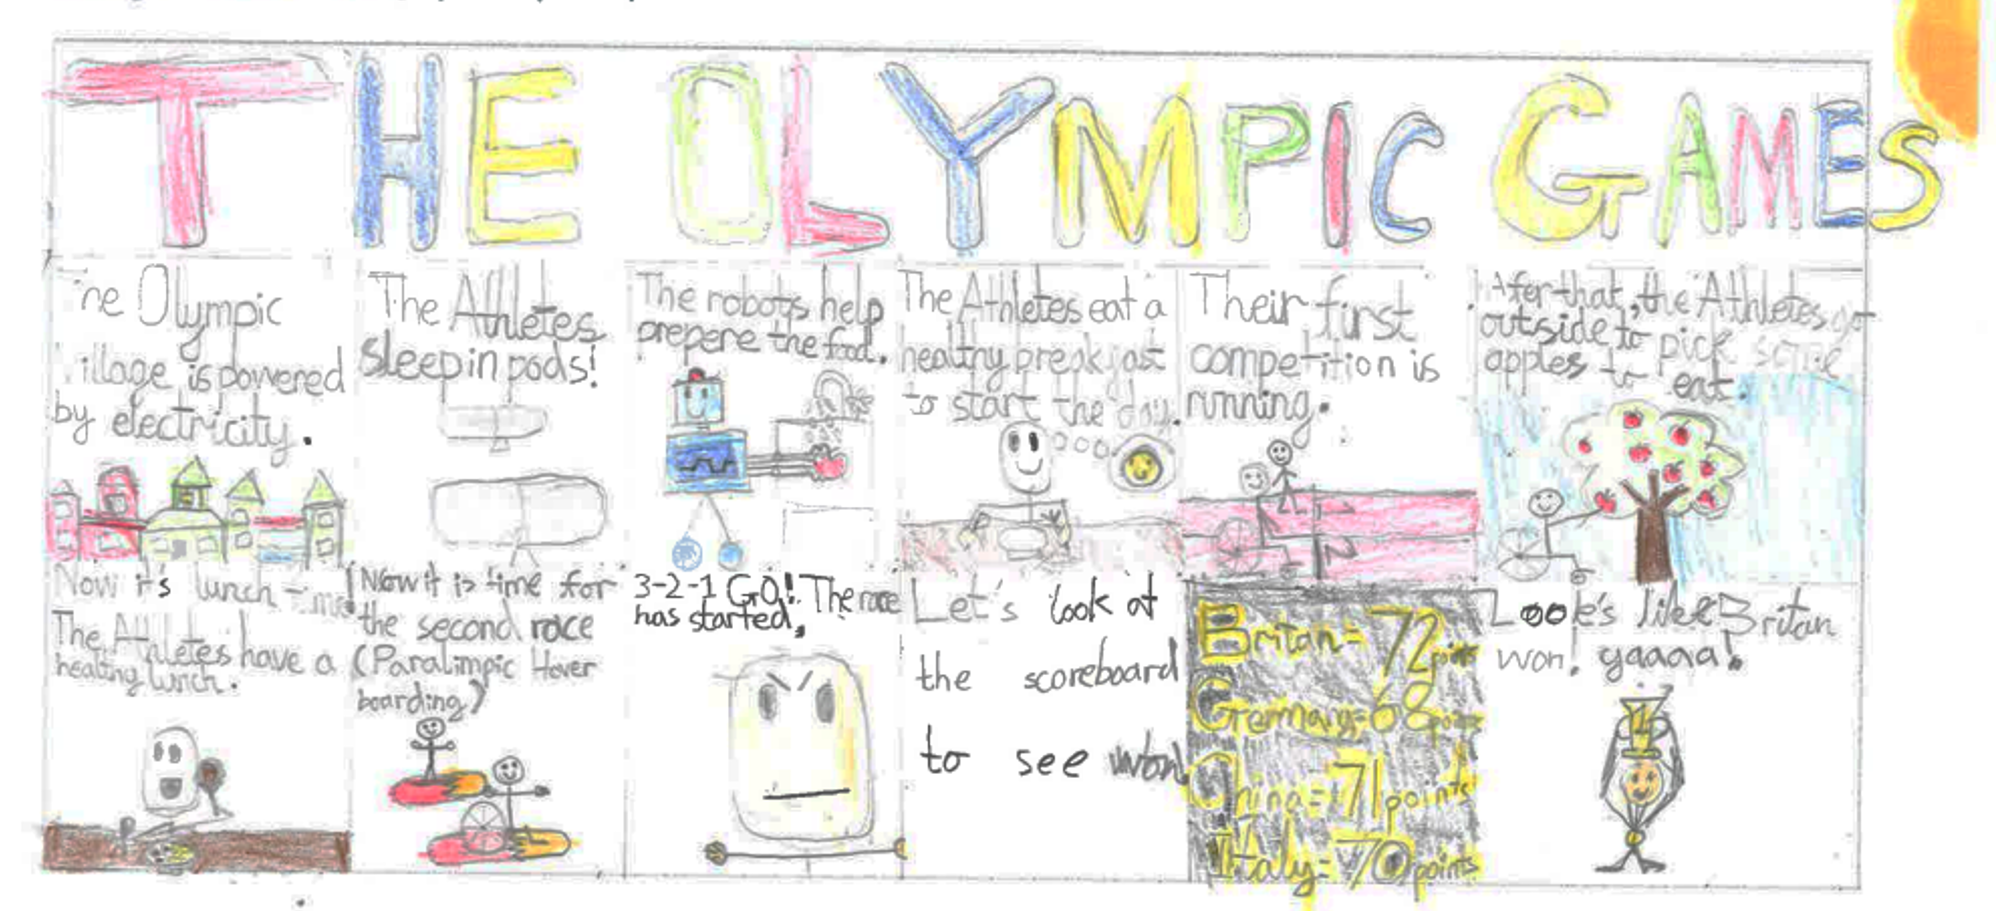 THE OLYMPIC GAMES
The Olympic
Village is powered
by electricity.
The Athletes
sleep in pods!
The robots help
prepere the food.
The Athletes eat a
healthy breakfast
to start the day.
Their first
competition is
running.
After that, the Athletes go
outside to pick some
apples to eat.
Now it's lunch time!
The Athletes have a
healthy lunch.
Now it is time for
the second race
(Paralimpic Hover
boarding)
3-2-1 GO! The race
has started.
Let's look at
the scoreboard
to see won!
Britan = 72 points
Germany = 68 points
China = 71 points
Italy = 70 points
Look's like Britan
won! yaaaa!
1